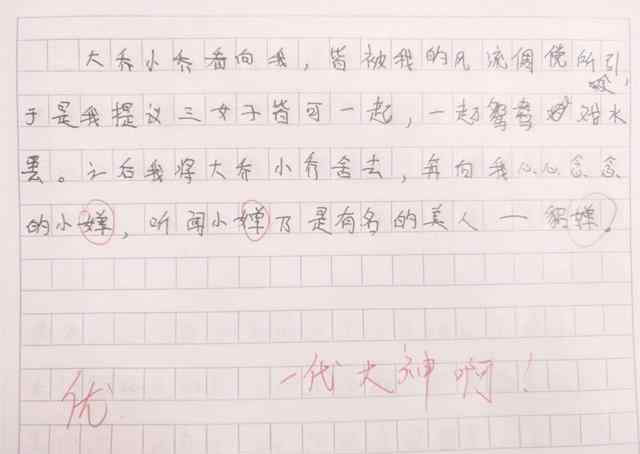 大乔小乔看向我，皆被我的风流倜傥所引，
于是我提议三女子皆可一起，一起鸳鸯戏水
罢。之后我将大乔小乔舍去，奔向我心心念念
的小婵，听闻小婵乃是有名的美人一貂婵。
优
一代大神啊！